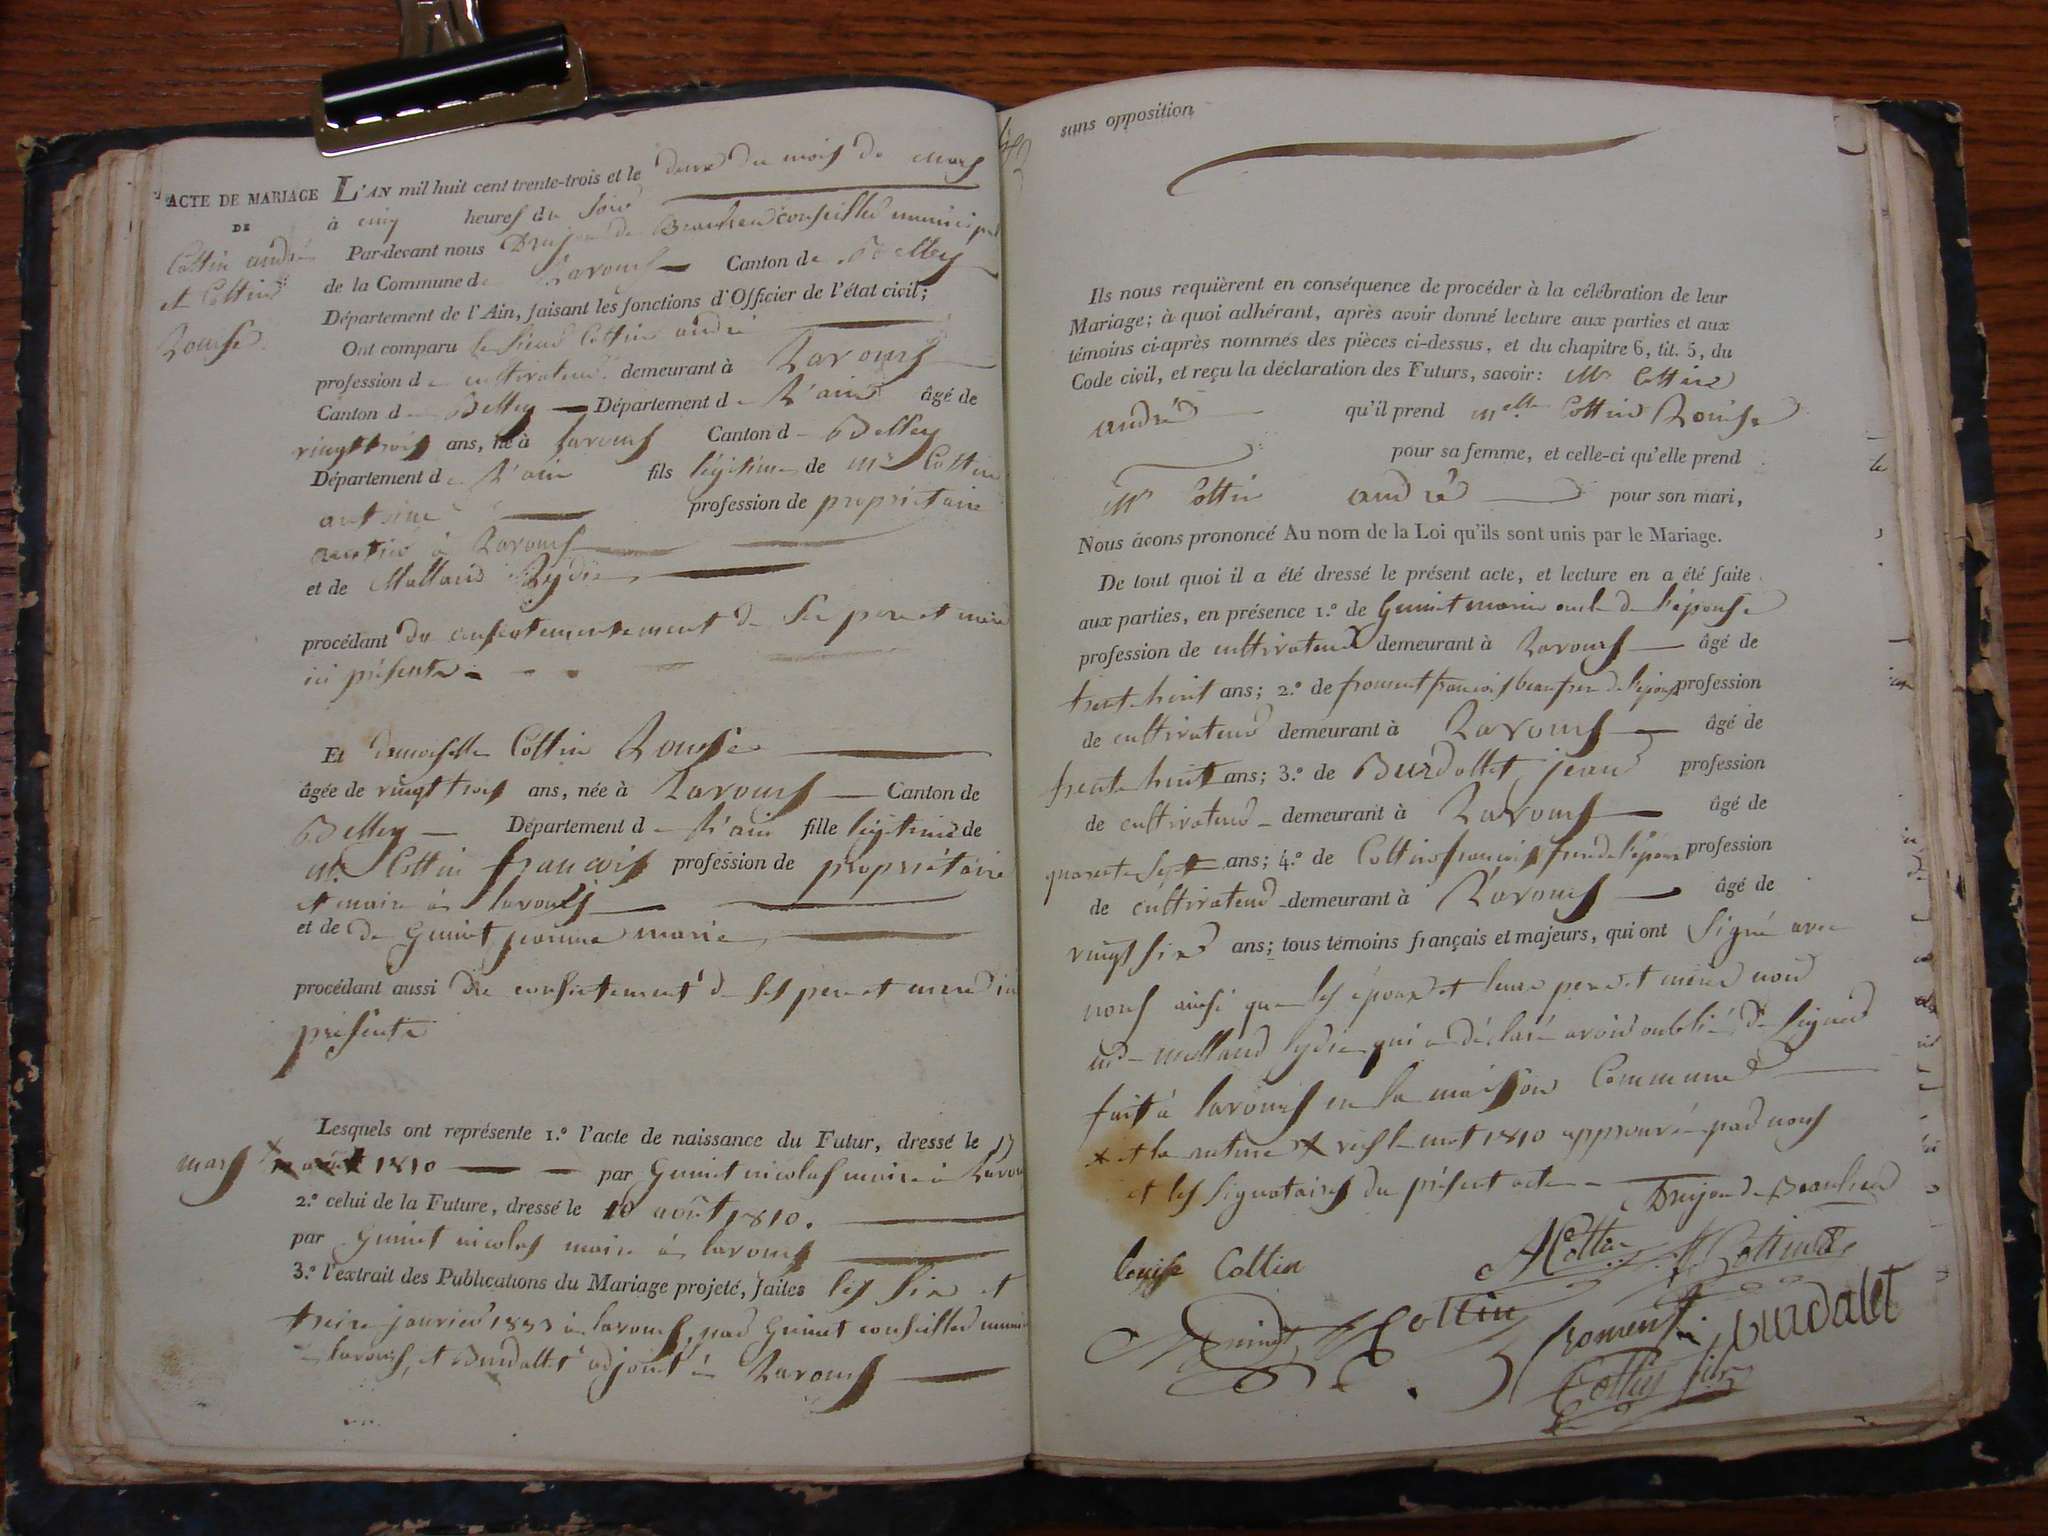 ACTE DE MARIAGE
DE
Cottin andré
et Cottin
Louise
L'AN mil huit cent trente-trois et le deux du mois de mars
à cinq heures du soir
Par-devant nous Drujon de Beaulieu conseiller municipal
de la Commune de Lavours Canton de Belley
Département de l'Ain, faisant les fonctions d'Officier de l'état civil;
Ont comparu le sieur Cottin andré
profession de cultivateur demeurant à Lavours
Canton de Belley Département de L'ain âgé de
vingt trois ans, né à lavours Canton de Belley
Département de L'ain fils légitime de mr Cottin
antoine profession de propriétaire
à Lavours
et de Mollard Lydie
procédant du consentementement de ses pere et mere
ici présents
Et demoiselle Cottin Louise
âgée de vingt trois ans, née à Lavours Canton de
Belley Département de L'ain fille légitime de
mr. Cottin francois profession de propriétaire
et maire à lavours
et de de Guinet jeanne marie
procédant aussi du consentement de ses pere et mere ici
présents
Lesquels ont représente 1.º l'acte de naissance du Futur, dressé le 17
mars x 1810 par Guinet nicolas maire à Lavours
2.º celui de la Future, dressé le 10 août 1810.
par Guinet nicolas maire à lavours
3.º l'extrait des Publications du Mariage projeté, faites les six et
treize janvier 1833 à lavours, par Guinet conseiller
à lavours, et Burdallet adjoint à Lavours
sans opposition
Ils nous requièrent en conséquence de procéder à la célébration de leur
Mariage; à quoi adhérant, après avoir donné lecture aux parties et aux
témoins ci-après nommés des pièces ci-dessus, et du chapitre 6, tit. 5, du
Code civil, et reçu la déclaration des Futurs, savoir: Mr Cottin
andré qu'il prend melle Cottin Louise
pour sa femme, et celle-ci qu'elle prend
Mr Cottin andré pour son mari,
Nous avons prononcé Au nom de la Loi qu'ils sont unis par le Mariage.
De tout quoi il a été dressé le présent acte, et lecture en a été faite
aux parties, en présence 1.º de Guinet marin oncle de l'épouse
profession de cultivateur demeurant à Lavours âgé de
trente huit ans; 2.º de froment francois beaufrere de l'epoux profession
de cultivateur demeurant à Lavours âgé de
trente huit ans; 3.º de Burdallet jean profession
de cultivateur demeurant à Lavours âgé de
quarante sept ans; 4.º de Cottin francois frere de l'epoux profession
de cultivateur demeurant à Lavours âgé de
vingt six ans; tous témoins français et majeurs, qui ont signé avec
nous ainsi que les époux et leurs pere et mere non
mollard lydie qui a déclaré avoir oublié de signer
fait à lavours en la maison Commune
x et la rature x mot 1810 approuvé par nous
et les signataires du présent acte Drujon de Beaulieu
louise Cottin ACottin Cottin
Guinet Cottin froment Burdalet
Cottin fils